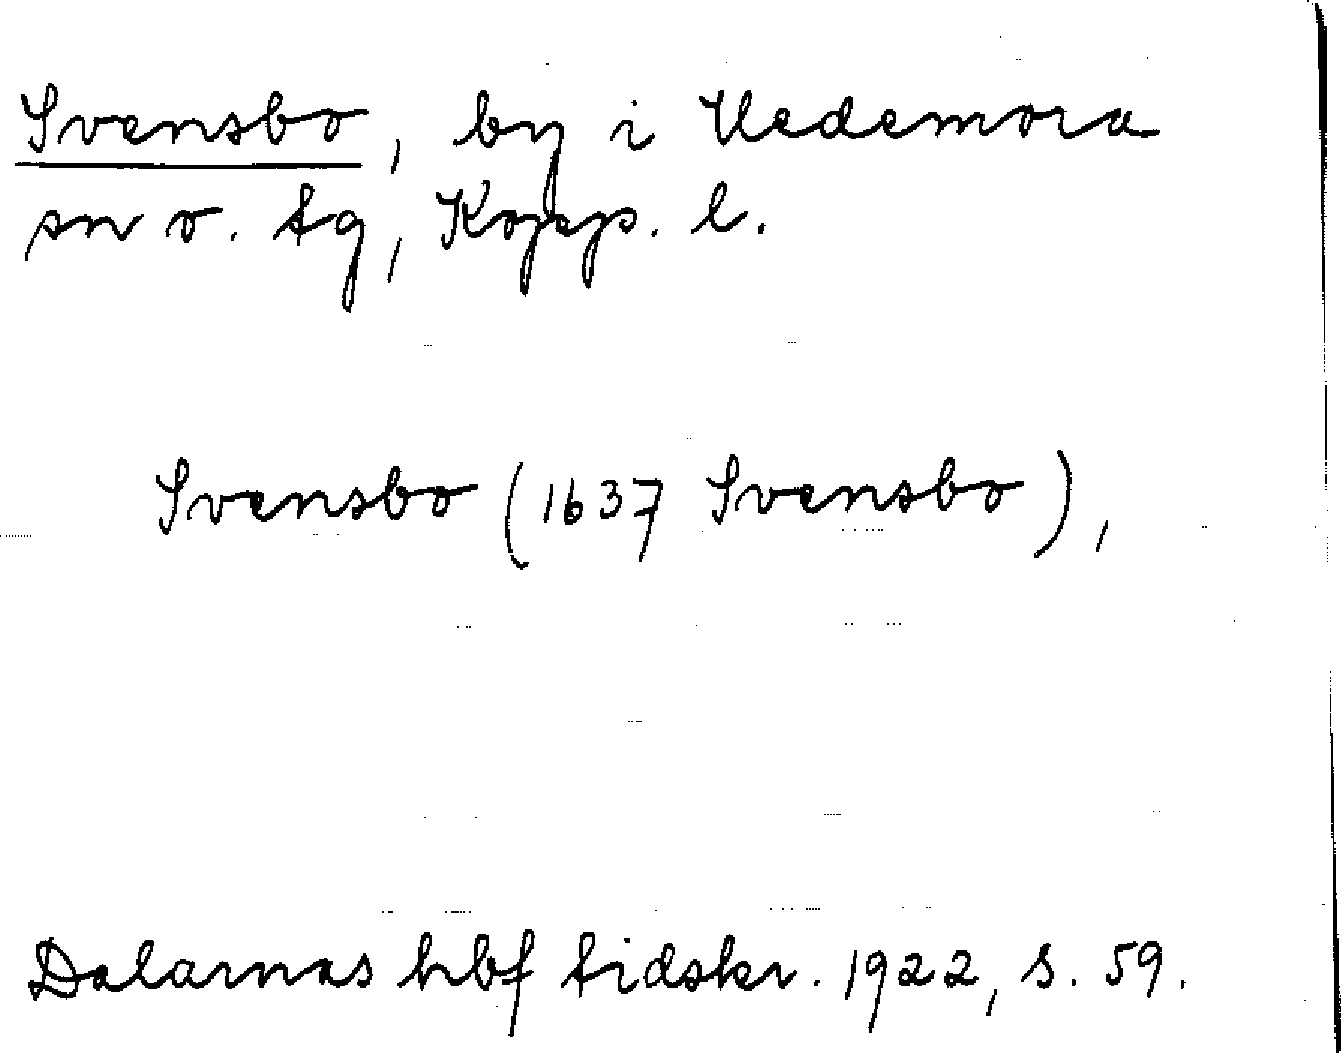 Svensbo, by i Hedemora
sn o. tg, Kopp. l.
Svensbo (1637 Svensbo),
Dalarnas hbf tidskr. 1922, s. 59.